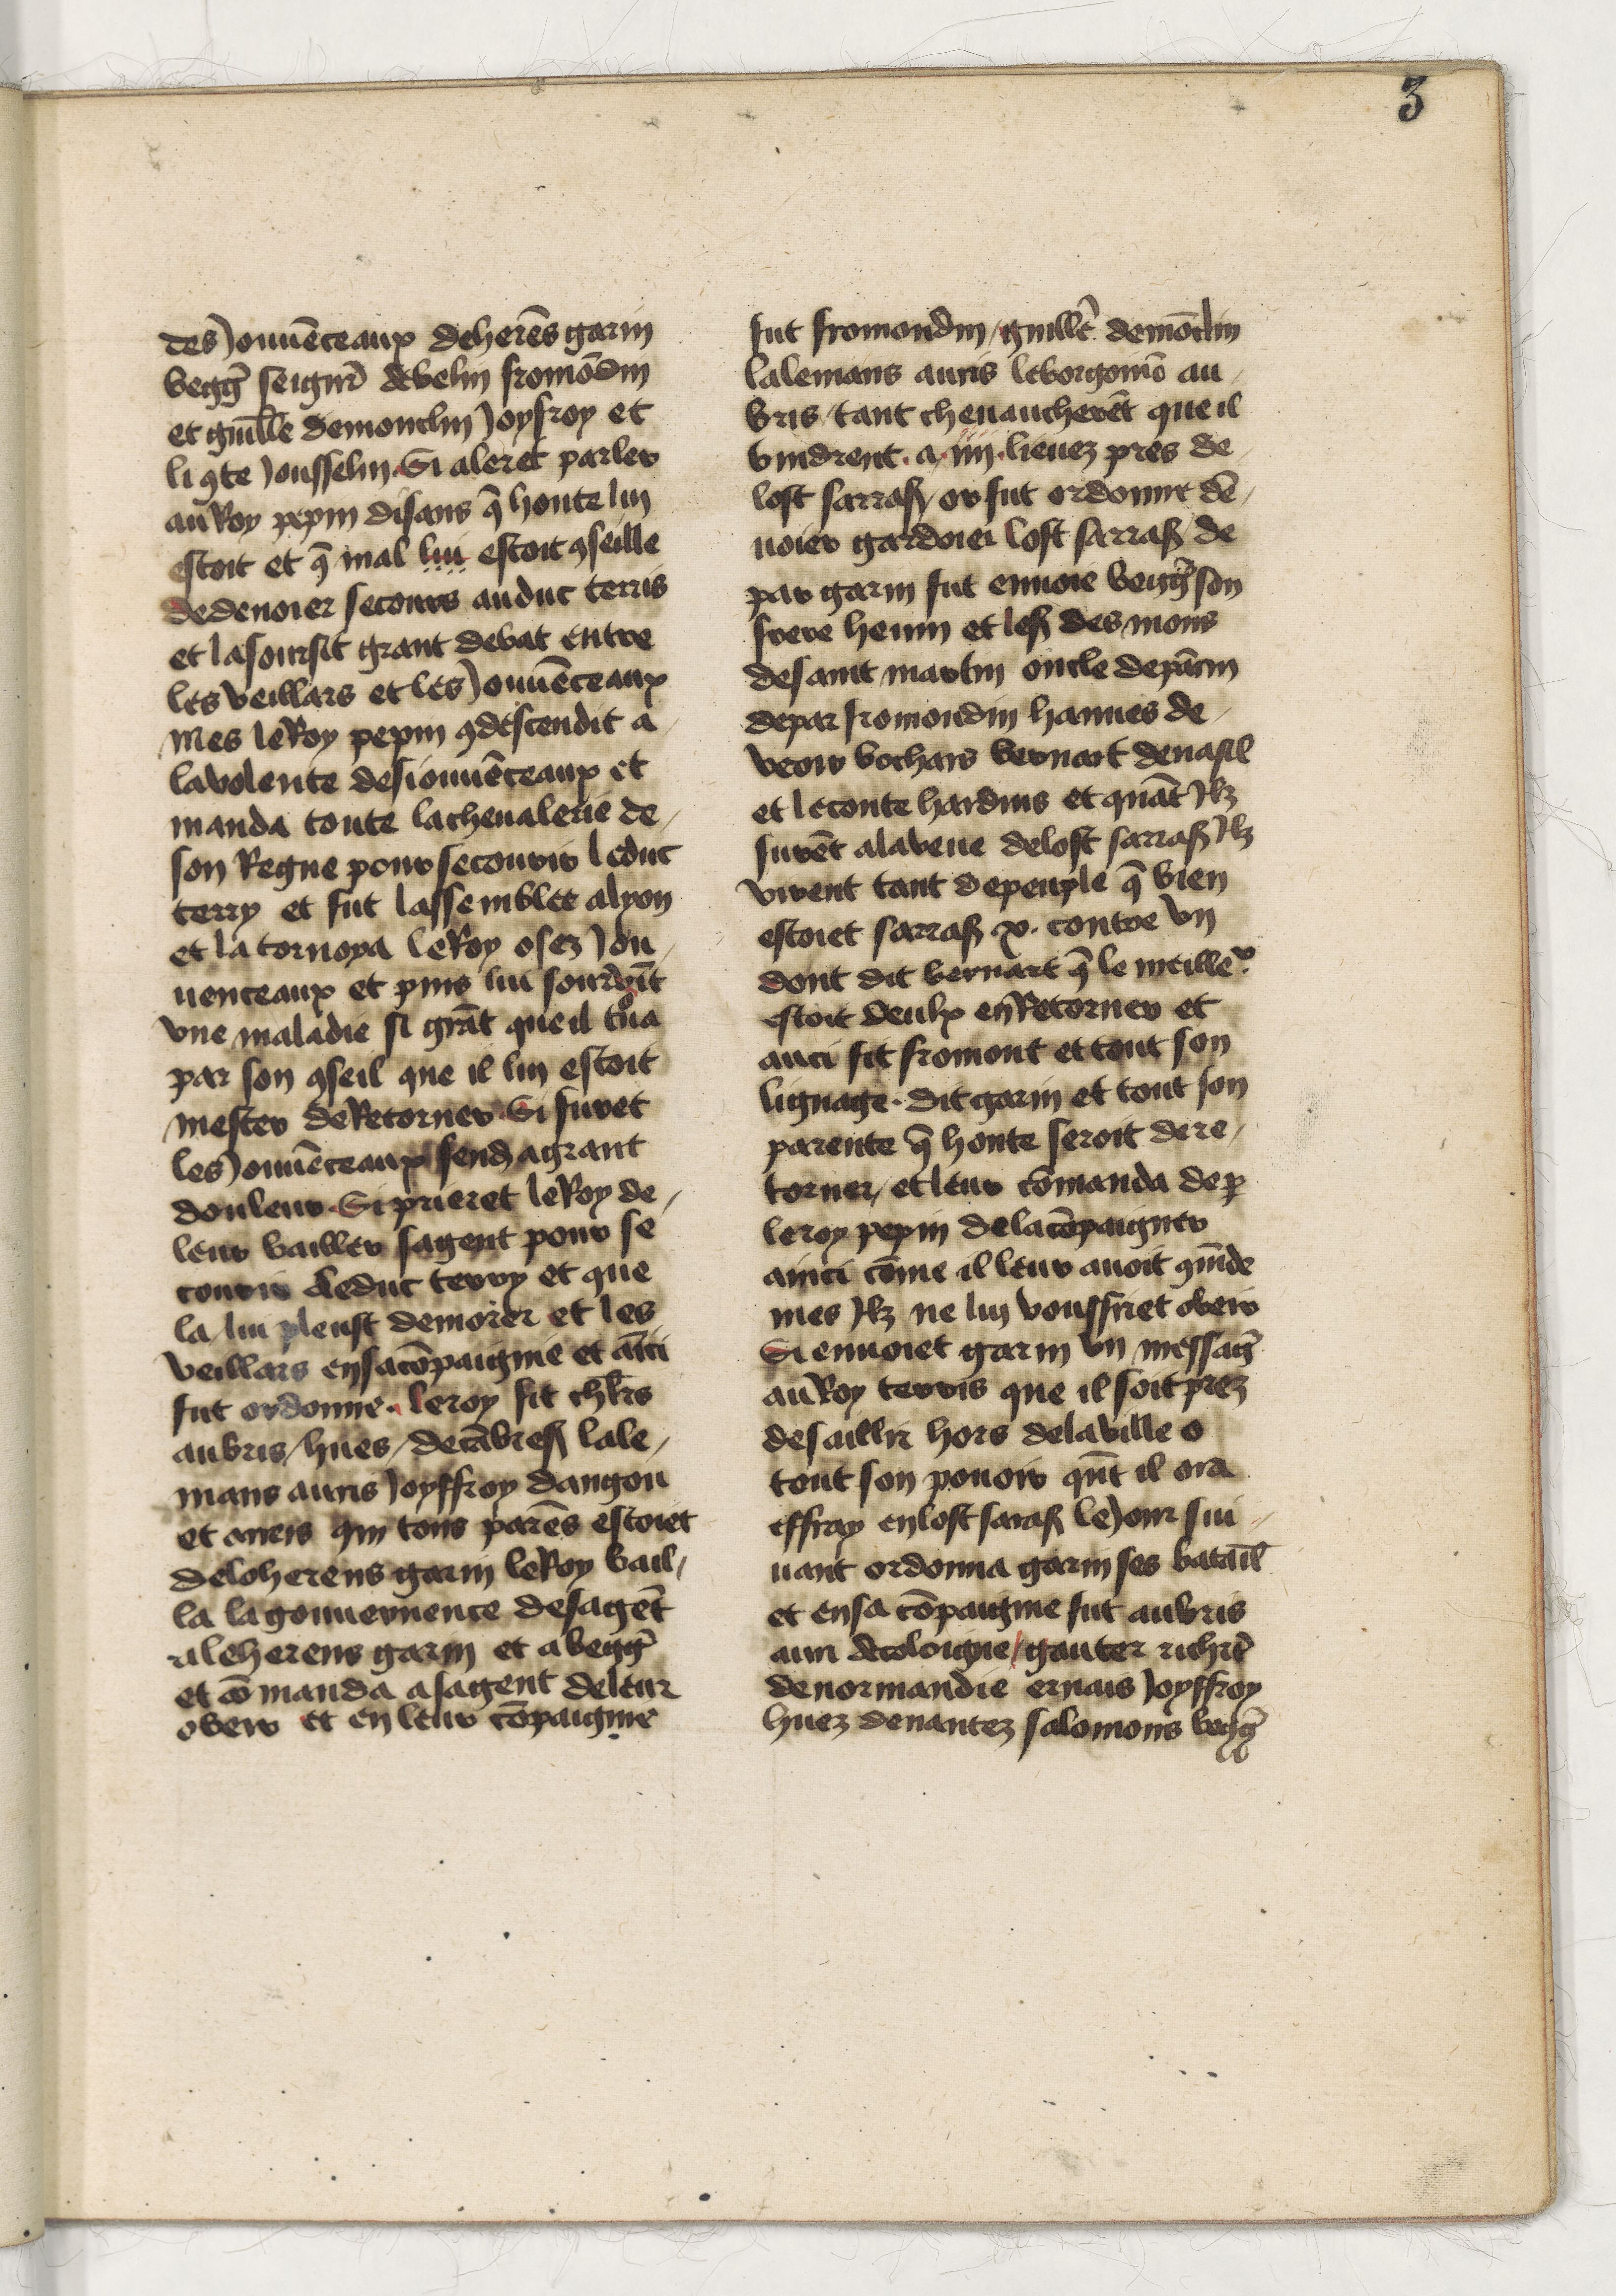 3
des Jouuēceaux deherēs garin
begḡ seignr̄ debelin fromōdin
et guill̄e demonclin Joyfroy et
li ꝯte Jousselin. Si aleret parler
au Roy pepin disans q̄ honte lui
estoit et q̄ mal lui estoit ꝯseille
dedenoier secours auduc terris
et lasoursit grant debat entre
les veillars et les Jouuēceaux
mes leRoy pepin ꝯdescendit a
lavolente desiouuēceaux et
manda toute lacheualerie de
son Regne pour secourir leduc
terry et fut lassemblee alyon
et la tornoya leRoy o sez Jou
uenceaux et puis lui sourdr̄it
vne maladie si grāt queil
par son ꝯseil que il lui estoit
mester deRetorner. Si furet
les Jouuēceaux agrant
douleur. Si prieret leRoy de
leur bailler sagent pour se
courir leduc terry et que
la lui pleust demorer et les
veillars ensacōpaignie et aīci
fut ordonne. leroy fit ch̄lrs
aubris / hues / decābres lale
mans auris Joyffroy dangou
et aneis qui tous parēs estoiet
deloherens garin leRoy bail
la lagouuernence desagēt
aleherens garin et a begḡ
et cōmanda asagent deleur
obeir et en leur cōpaignie
fut fromondin / guill̄e demōclin
lalemans auris leborgoinō au
bris / tant cheuaucherēt que il
vindrent . a . iiii . lieuez pres de
lost sarraß / or fut ordonne dē
uoier gardoier lost sarraß de
par garin fut enuoie begḡ son
frere heuin et leß des mons
desaint martin oncle depārin
depar fromondin hannes de
veoir bochars bernart denasil
et leconte hardins et quāt Jlz
furēt alabeue delost sarraß Jlz
virent tant depeuple q̄ bien
estoiet sarraß x. contre vn
dont dit bernart q̄ le meille͛
estoit deulx enRetorner et
auci fit fromont et tout son
lignage . dit garin et tout son
parente q̄ honte seroit dere
torner / et leur cōmanda deꝑ
leroy pepin delacōpaigner
ainci cōme il leur auoit ꝯm̄de
mes Jlz ne lui vousfriet obeir
Si enuoiet garin vn messaḡ
auRoy terris que il soit prez
desaillir hors delaville o
tout son pouoir qn̄t il ora
effray enlost saraß leJour sui
uant ordonna garin ses batail̄
et ensa cōpaignie fut aubris
auri decoloigne / gauter richir̄
denormandie ernais Joyffroy
huez denantez salomons begḡ